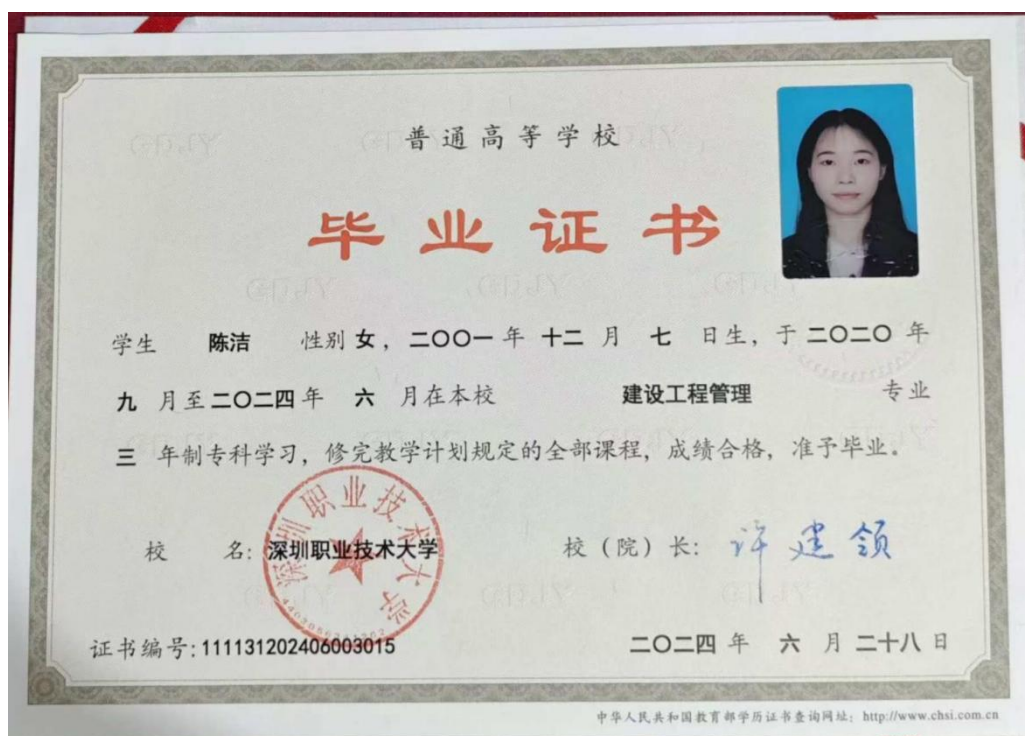 普通高等学校
毕业证书
学生 陈洁 性别 女, 二〇〇一 年 十二 月 七 日生, 于 二〇二〇 年
九 月至 二〇二四 年 六 月在本校 建设工程管理 专业
三 年制专科学习, 修完教学计划规定的全部课程, 成绩合格, 准予毕业。
校 名: 深圳职业技术大学
深圳职业技术大学
校(院)长: 许建领
证书编号: 111131202406003015
二〇二四 年 六 月 二十八 日
中华人民共和国教育部学历证书查询网址: http://www.chsi.com.cn